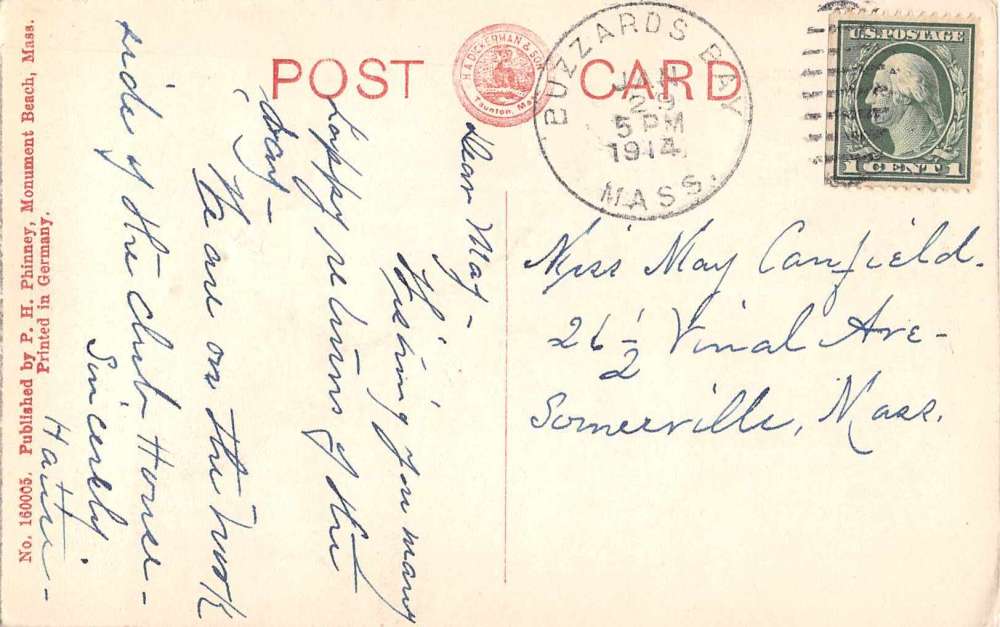 No. 160005. Published by P. H. Phinney, Monument Beach, Mass.
Printed in Germany.
POST CARD
H.A. DICKERMAN & SON
Taunton, Mass.
BUZZARDS BAY
JAN
29
5 PM
1914
MASS.
U.S. POSTAGE
1 CENT 1
Dear May -
Wishing you many
happy returns of the
day -
We are on the brook
side of the club House -
Sincerely.
Hattie -
Miss May Canfield.
26 1/2 Vinal Ave -
Somerville, Mass.